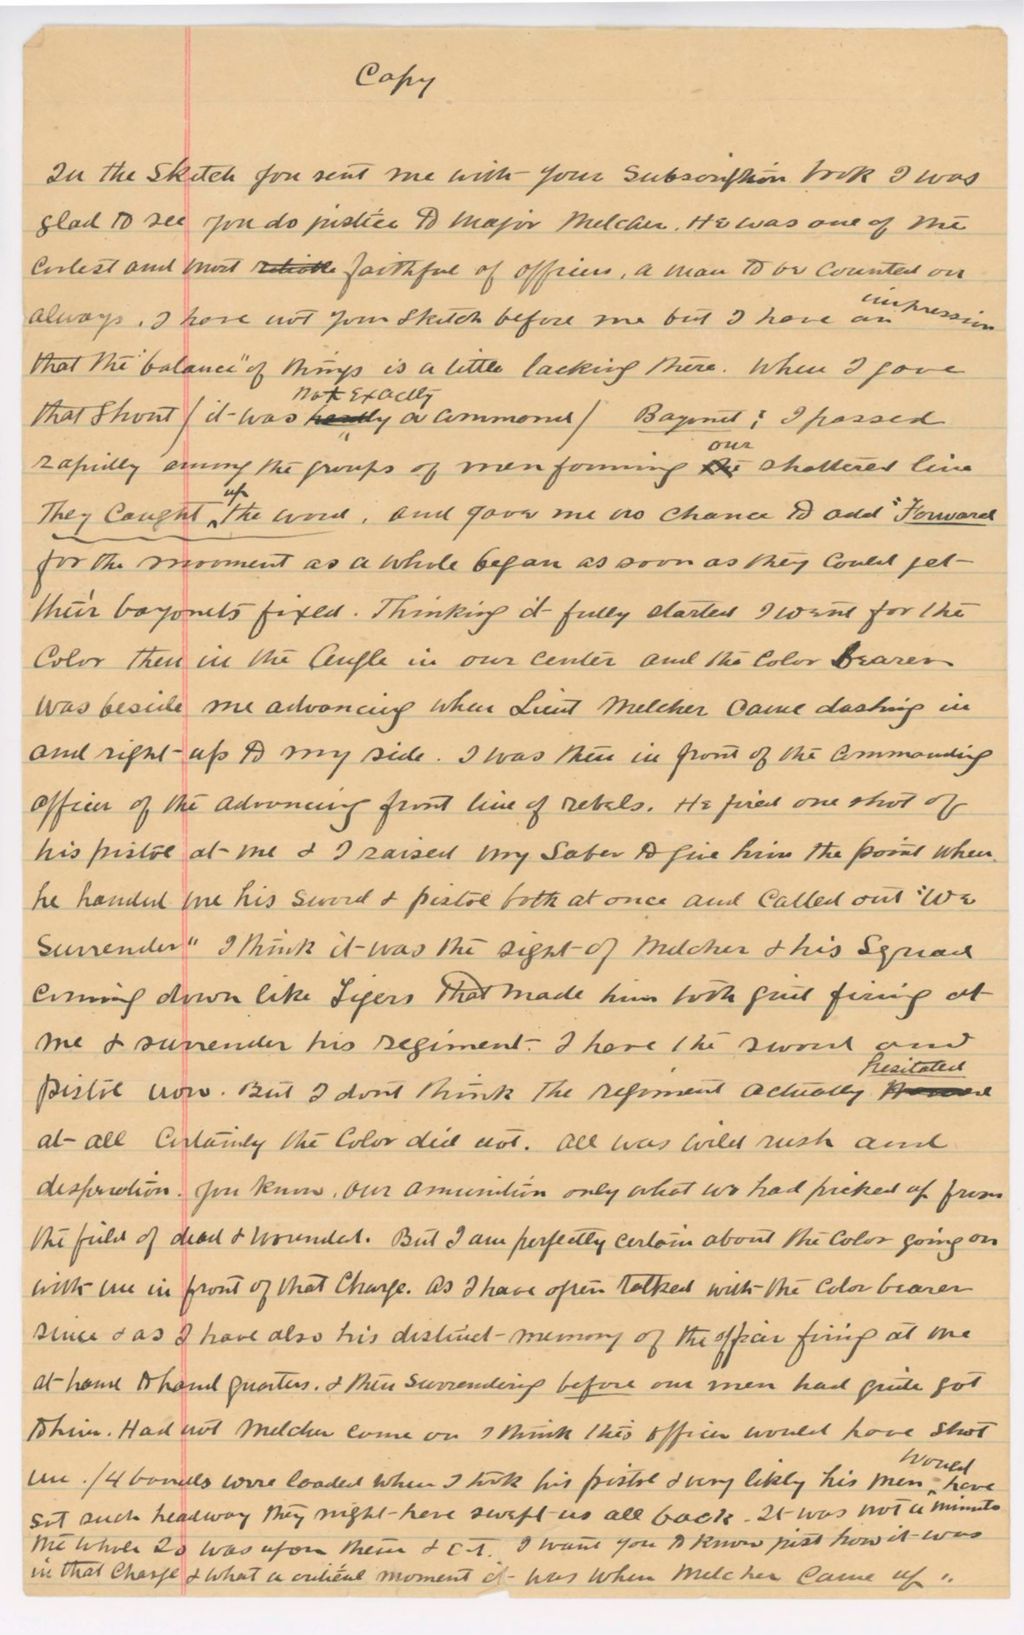 Copy
In the Sketch you sent me with your Subscription book I was
glad to see you do justice to Major Melcher. He was one of the
coolest and most faithful of officers, a man to be counted on
always. I have not your Sketch before me but I have an impression
that the "balance" of things is a little lacking there. When I gave
that Shout (it was not exactly a command) Bayonet; I passed
rapidly among the groups of men forming our shattered line
They Caught up the word, and gave me no chance to add "Forward
for the movement as a whole began as soon as they could get
their bayonets fixed. Thinking it fully started I went for the
Color then in the Angle in our center and the Color bearer
was beside me advancing when Lieut Melcher came dashing in
and right up to my side. I was then in front of the commanding
officer of the advancing front line of rebels. He fired one shot of
his pistol at me & I raised my Saber to give him the point when
he handed me his sword & pistol both at once and called out "We
Surrender" I think it was the sight of Melcher & his Squad
coming down like Tigers that made him both quit firing at
me & surrender his regiment. I have the sword and
pistol now. But I dont think the regiment actually hesitated
at all Certainly the Color did not. All was wild rush and
desperation. You know, our amunition only what we had picked up from
the field of dead & wounded. But I am perfectly certain about the Color going on
with me in front of that Charge. As I have often talked with the Color bearer
since & as I have also his distinct memory of the officer firing at me
at hand to hand quarters. & then surrendering before our men had quite got
to him. Had not Melcher come on I think this officer would have shot
me. (4 barrels were loaded when I took his pistol & very likely his men would have
got such headway they might have swept us all back. It was not a minute
the whole 20 was upon them & I want you to know just how it was
in that Charge & what a critical moment it was when Melcher came up".